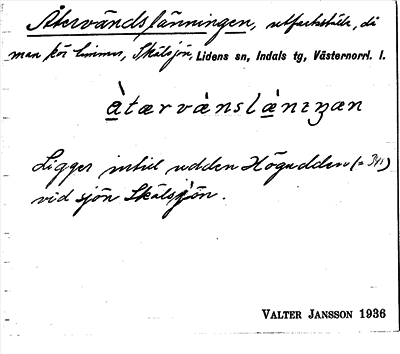 Återvändslänningen, utfartsställe, då
man kör timmer, Skälsjön, Lidens sn, Indals tg, Västernorrl. l.
àtærvànslànıŋan
Ligger intill udden Högudden (= 311)
vid sjön Skälsjön.
VALTER JANSSON 1936